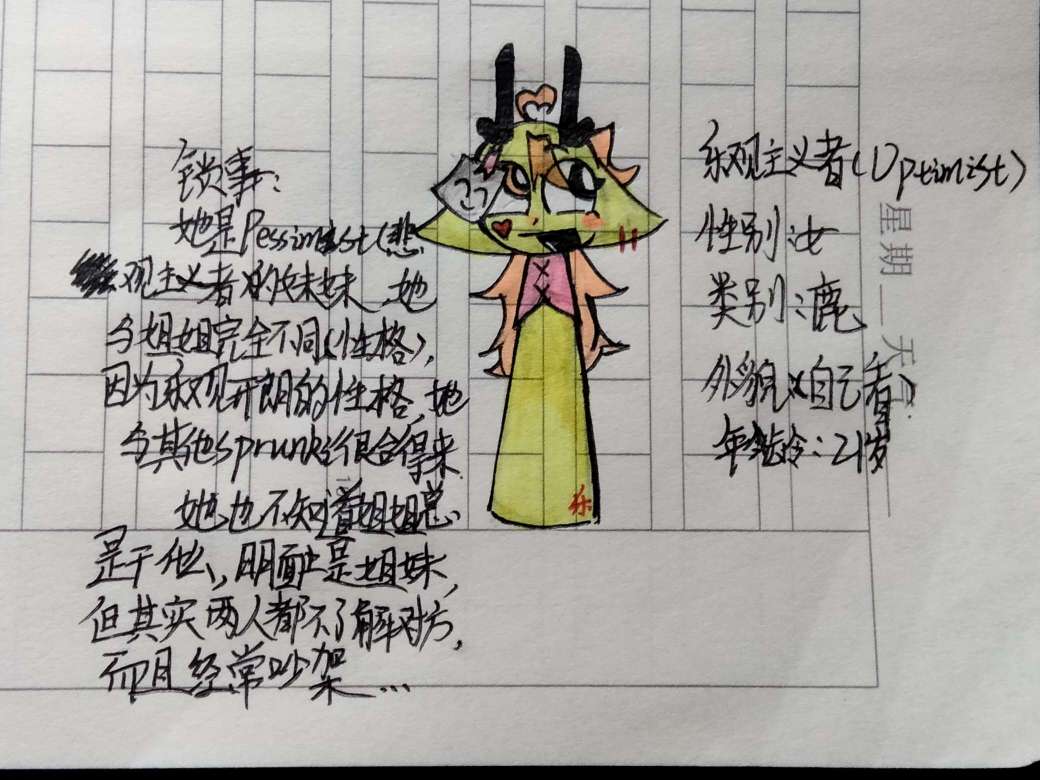 锁事：
她是Pessimist（悲
观主义者）的妹妹，她
与姐姐完全不同（性格），
因为乐观开朗的性格，她
与其他sprunki很合得来
她也不知道姐姐总
是干什么，明面上是姐妹，
但其实两人都不了解对方，
而且经常吵架…
乐
乐观主义者（Optimist）
性别：女
类别：鹿
外貌：自己看
年龄：21岁
星期
天气：